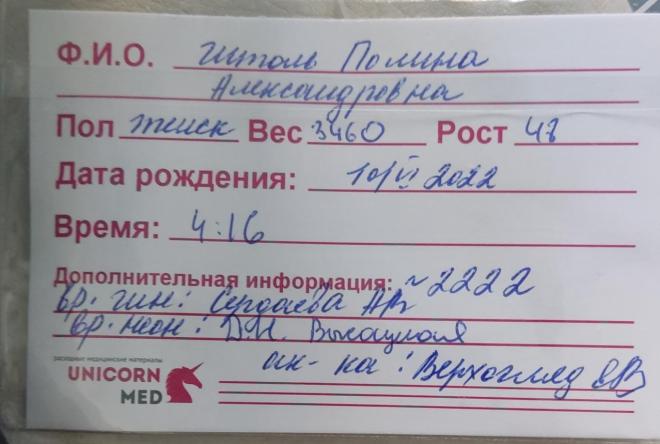 Ф.И.О. Шталь Полина
Александровна
Пол женск Вес 3460 Рост 48
Дата рождения: 10/VI 2022
Время: 4:16
Дополнительная информация: ~2222
вр. гин:
вр. неон: Д.Н.
ак-ка: Верхогляд
расходные медицинские материалы
UNICORN
MED